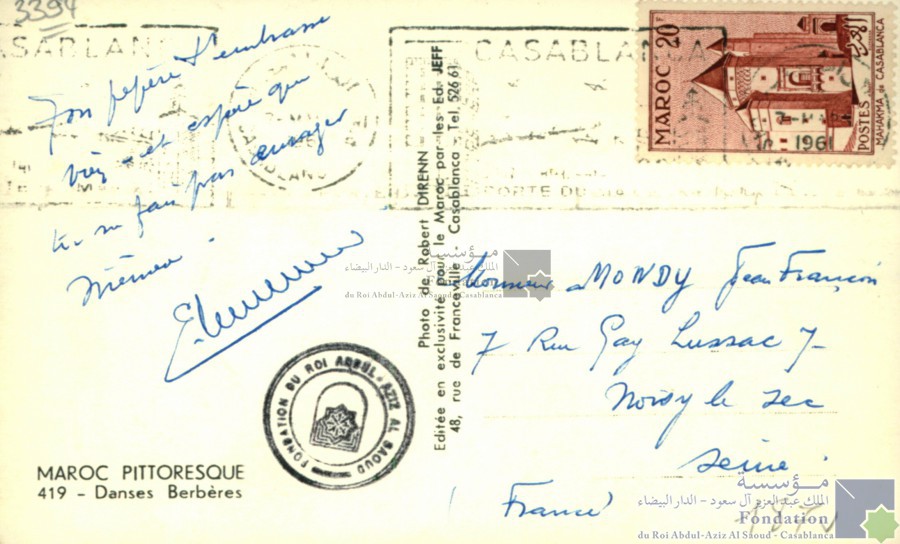 3394
CASABLANCA
CASABLANCA
Ton pépère t'embrasse
bien et espère que
tu ne fais pas enrager
Mémée.
MAROC PITTORESQUE
419 - Danses Berbères
FONDATION DU ROI ABDUL-AZIZ AL SAOUD
Photo de Robert DIRENN
Editée en exclusivité pour le Maroc par les Ed. JEFF
48, rue de Franceville Casablanca - Tel. 526 61
MAROC 20F
POSTES
MAHAKMA de CASABLANCA
المغرب
1961
Monsieur MONDY Jean François
7 Rue Gay Lussac 7
Noisy le Sec
Seine
France
مؤسسة
الملك عبد العزيز آل سعود - الدار البيضاء
du Roi Abdul-Aziz Al Saoud - Casablanca
مؤسسة
الملك عبد العزيز آل سعود - الدار البيضاء
Fondation
du Roi Abdul-Aziz Al Saoud - Casablanca